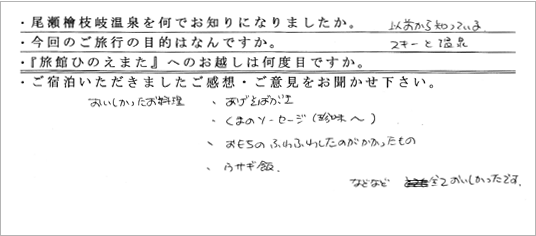 ・尾瀬檜枝岐温泉を何でお知りになりましたか。 以前から知っている
・今回のご旅行の目的はなんですか。 スキーと温泉
・『旅館ひのえまた』へのお越しは何度目ですか。
・ご宿泊いただきましたご感想・ご意見をお聞かせ下さい。
おいしかったお料理 ・あげそばがき
・くまのソーセージ(珍味へ)
・おもちのふわふわしたのがかかったもの
・ウサギ飯.
などなど 全ておいしかったです.